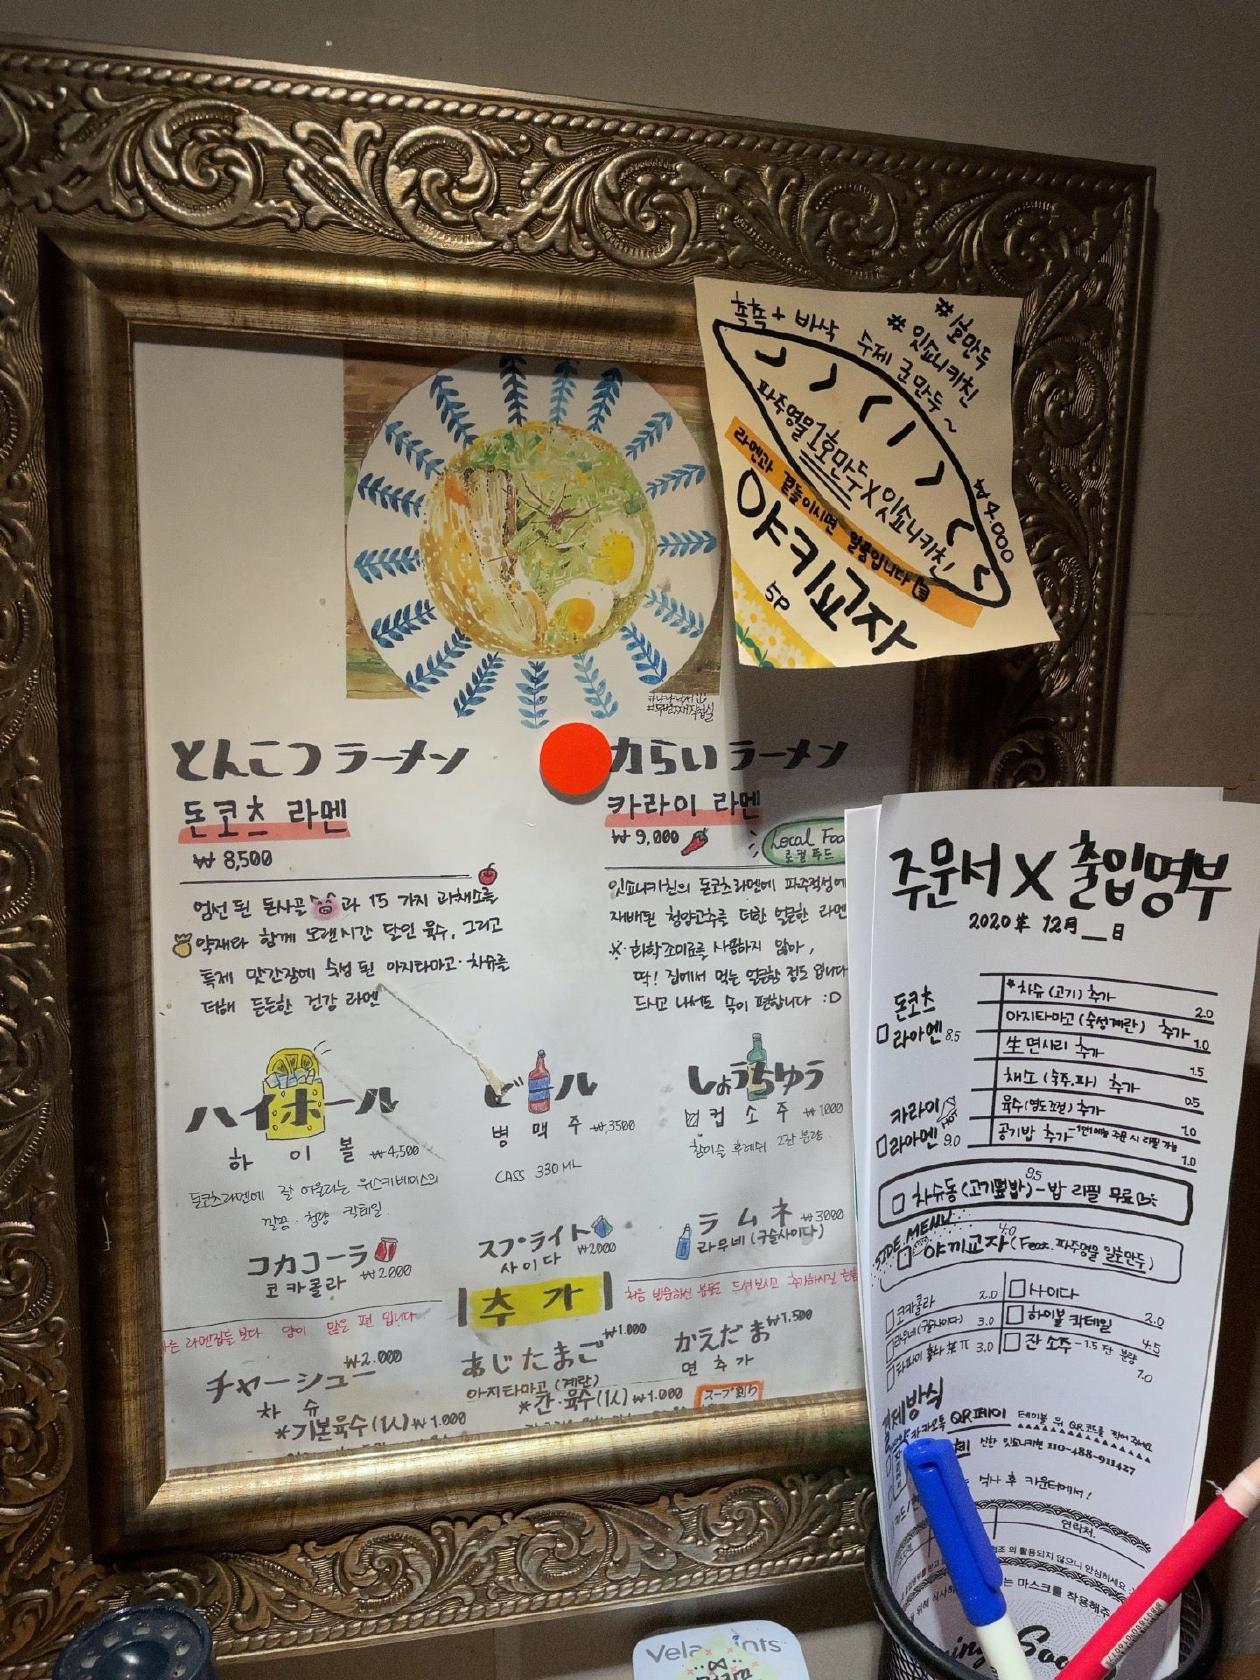 촉촉 + 바삭
수제 군만두 ~
#잇쇼니키친
파주명물 1호만두 X 잇쇼니키친
라멘과 곁들이시면 일품입니다
₩4.000
야키교자
5P
とんこつ ラーメン
돈코츠 라멘
₩ 8,500
엄선 된 돈사골 과 15 가지 과채소를
약재와 함께 오랜시간 달인 육수, 그리고
특제 맛간장에 숙성 된 아지타마고·차슈를
더해 든든한 건강 라멘
からい ラーメン
카라이 라멘
₩ 9,000
Local Foo
로컬푸드
잇쇼니키친의 돈코츠라멘에 파주적성에
재배된 청양고추를 더한 얼큰한 라멘
※ 화학조미료를 사용하지 않아,
딱! 집에서 먹는 얼큰함 정도 입니다
드시고 나서도 속이 편합니다 :D
ハイボール
하 이 볼 ₩4,500
돈코츠라멘에 잘 어울리는 위스키베이스의
깔끔·청량 칵테일
ビール
병 맥 주 ₩3,500
CASS 330ML
しょうちゅう
컵 소 주 ₩1000
참이슬 후레쉬 2잔 분량
コカコーラ
코카콜라 ₩2000
スプライト
사이다 ₩2000
ラムネ ₩3000
라무네 (구슬사이다)
는 라멘집들 보다 양이 많은 편 입니다
추 가
처음 방문하신 분들은 드셔보시고 추가하시길
₩2.000
チャーシュー
차 슈
*기본육수(1人) ₩1.000
₩1.000
あじたまご
아지타마고 (계란)
*간·육수(1人) ₩1.000
かえだま ₩1.500
면 추 가
スープ割り
주문서 X 출입명부
2020年 12月__日
돈코츠
라아멘 8.5
카라이
라아멘 9.0
*차슈 (고기) 추가 2.0
아지타마고 (숙성계란) 추가 1.0
生면사리 추가 1.5
채소 (숙주.파) 추가 0.5
육수(염도조절) 추가 1.0
공기밥 추가 1.0
차슈동 (고기덮밥) - 밥 리필 무료 8.5
SIDE MENU
야끼교자 (Feat. 파주명물 일호만두) 4.0
코카콜라 2.0
라무네 (구슬사이다) 3.0
3.0
사이다 2.0
하이볼 칵테일 4.5
잔 소주 - 1.5잔 분량 1.0
결제방식
QR페이 테이블 위 QR코드를 찍어 주세요
신한 잇쇼니키친 110-488-911427
식사 후 카운터에서!
연락처.
활용되지 않으니 안심하세요
마스크를 착용해주
Velamints